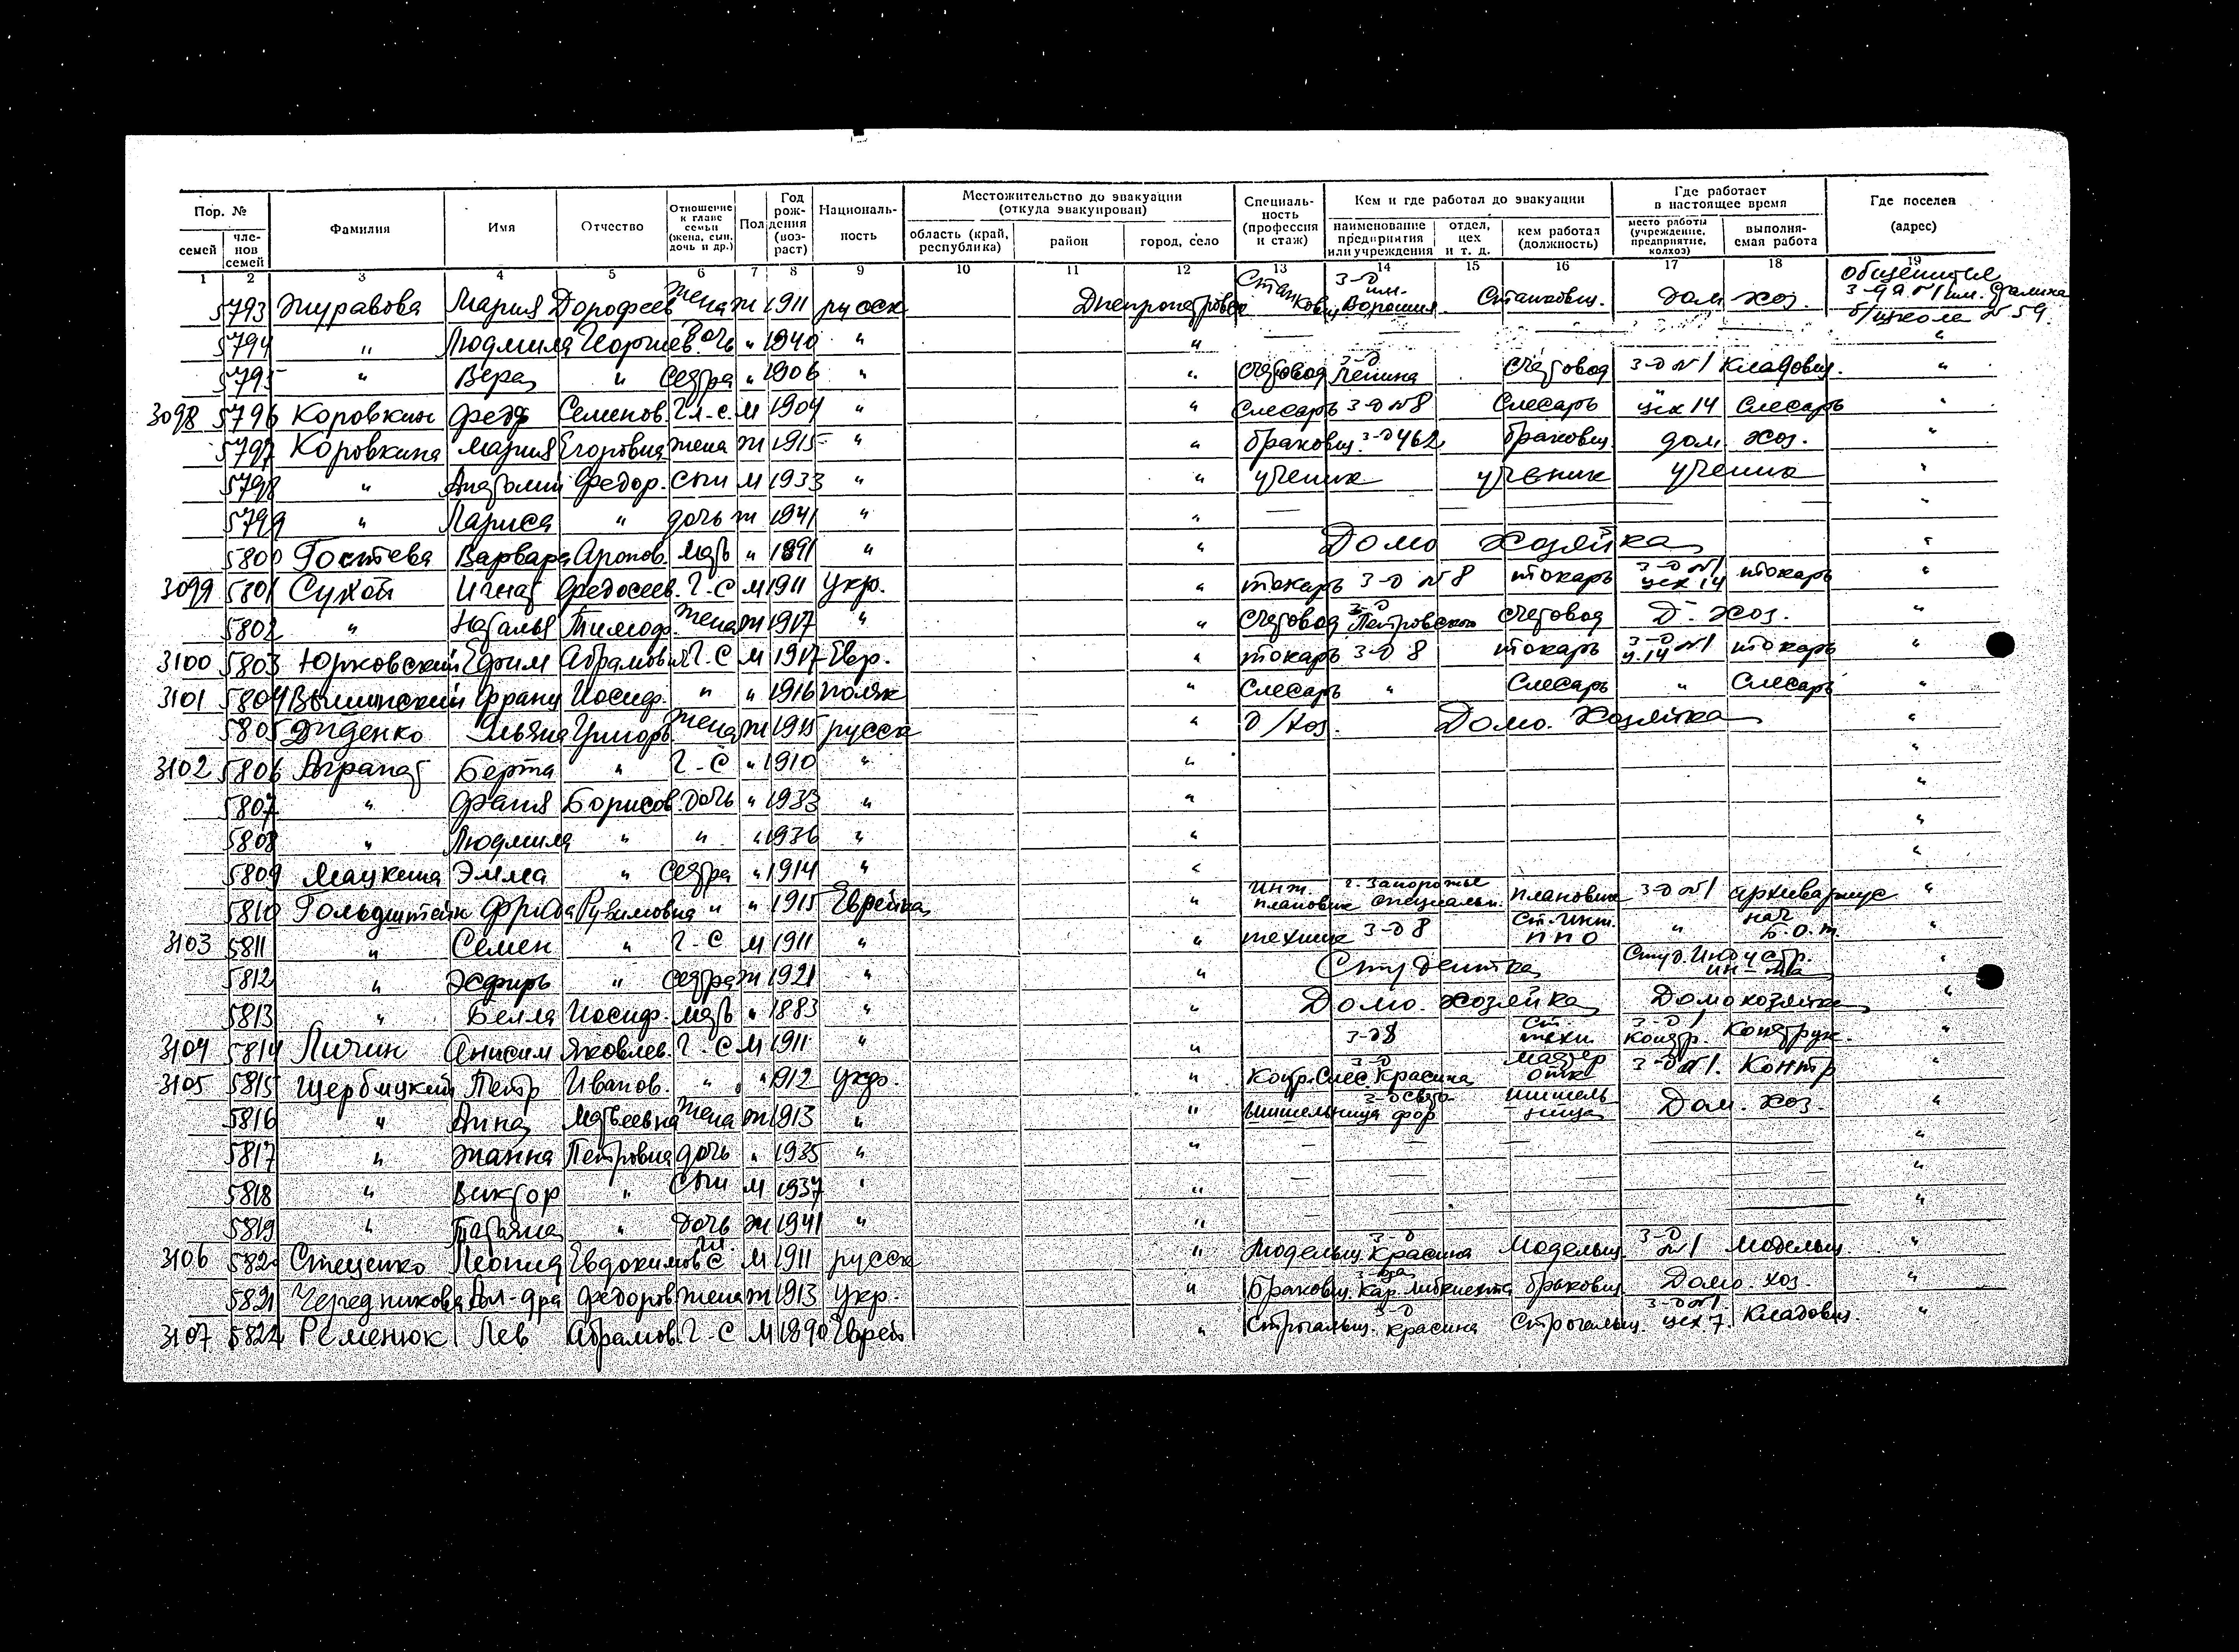 Пор. № Фамилия Имя Отчество Отношение к главе семьи (жена, сын, дочь и др.) Пол Год рождения (возраст) Националь- ность Местожительство до эвакуации (откуда эвакуирован) Специаль- ность (профессия и стаж) Кем и где работал до эвакуации Где работает в настоящее время Где поселен (адрес)
семей чле- нов семей область (край, республика) район город, село наименование предприятия или учреждения отдел, цех и т. д. кем работал (должность) место работы (учреждение, предприятие, колхоз) выполня- емая работа
1 2 3 4 5 6 7 8 9 10 11 12 13 14 15 16 17 18 19
5793 Журавова Мария Дорофеев жена ж 1911 русск Днепропетровск Станковщ З-д им. Ворошил. Станковщ. Дом. хоз. Общежитие З-да №1 им. Сталина б/школе №59.
5794 " Людмила Георгиев. дочь " 1940 " " "
5795 " Вера " Сестра " 1906 " " Счетовод З-д Ленина Счетовод З-д №1 Кладовщ. "
3098 5796 Коровкин Федр Семенов. Гл-с. М 1904 " " Слесарь З-д №8 Слесарь цех 14 Слесарь "
5797 Коровкина Мария Егоровна жена ж 1915 " " браковщ. З-д 462 браковщ. дом. хоз. "
5798 " Анатолий Федор. Сын М 1933 " " ученик ученик ученик "
5799 " Лариса " дочь ж 1941 " " "
5800 Гостева Варвара Аронов. мать " 1891 " " Домо хозяйка "
3099 5801 Сухой Игнат Федосеев. Г-С М 1911 Укр. " токарь З-д №8 токарь З-д №1 цех 14 токарь "
5802 " Наталья Тимоф. жена ж 1917 " " Счетовод З-д Петровского Счетовод Д-хоз. "
3100 5803 Юрковский Ефим Абрамович Г-С М 1917 Евр. " токарь З-д 8 токарь З-д №1 ц. 14 токарь "
3101 5804 Вышинский Франц Иосиф. " " 1916 поляк " Слесарь " Слесарь " Слесарь "
5805 Диденко Ульяна Григорь. жена ж 1915 русск " д/хоз. Домо. Хозяйка "
3102 5806 Агранат Берта " Г-С " 1910 " " "
5807 " Фаня Борисов. дочь " 1933 " " "
5808 " Людмила " " " 1936 " " "
5809 Мацкина Эмма " Сестра " 1914 " " "
5810 Гольдштейн Фрида Рувимовна " " 1915 Еврейка " инж. плановик г. Запорожье плановик З-д №1 архивариус "
5811 3103 " Семен " Г-С М 1911 " " техник З-д 8 Ст. Инж. ППО " нач Б.О.Т. "
5812 " Эсфирь " Сестра ж 1921 " " Студентка Студ. Индустр. ин-та "
5813 " Белла Иосиф. мать " 1883 " " Домо. хозяйка Домохозяйка "
3104 5814 Личин Анисим Яковлев. Г-С М 1911 " " З-д 8 Ст техн. З-д 1 Констр. Конструк. "
3105 5815 Щербицкий Петр Иванов. " " 1912 Укр. " Контр. Слес. З-д Красина мастер ОТК З-д №1. Контр "
5816 " Анна Матвеевна жена ж 1913 " " фор Дом. хоз. "
5817 " Жанна Петровна дочь " 1935 " " "
5818 " Виктор " Сын М 1937 " " "
5819 " Татьяна " дочь ж 1941 " " "
3106 5820 Стеценко Леонид Евдокимов гл. С М 1911 русск " Модельщ. З-д Красина Модельщ. З-д №1 Модельщ. "
5821 Чередникова Ал-дра Федоров жена ж 1913 Укр. " Браковщ. З-да Кар. Либкнехта браковщ. Домо. хоз. "
3107 5822 Ременюк Лев Абрамов. Г-С М 1890 Еврей " Строгальщ. З-д Красина Строгальщ. З-д №1 цех 7. Кладовщ. "